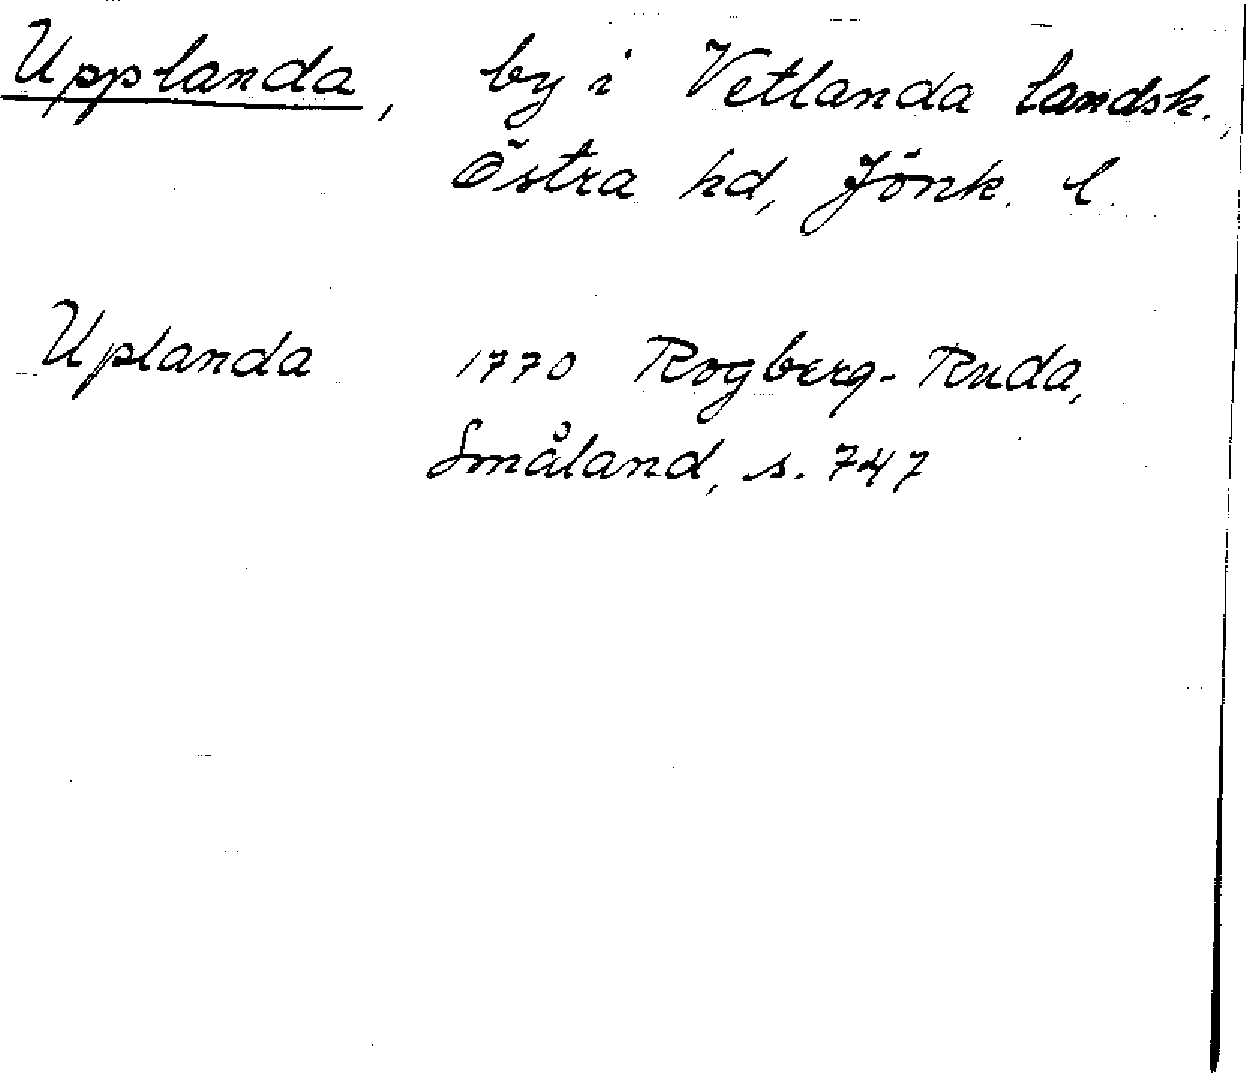 Upplanda, by i Vetlanda landsk.,
Östra hd, Jönk. l.
Uplanda 1770 Rogberg-Ruda,
Småland, s. 747